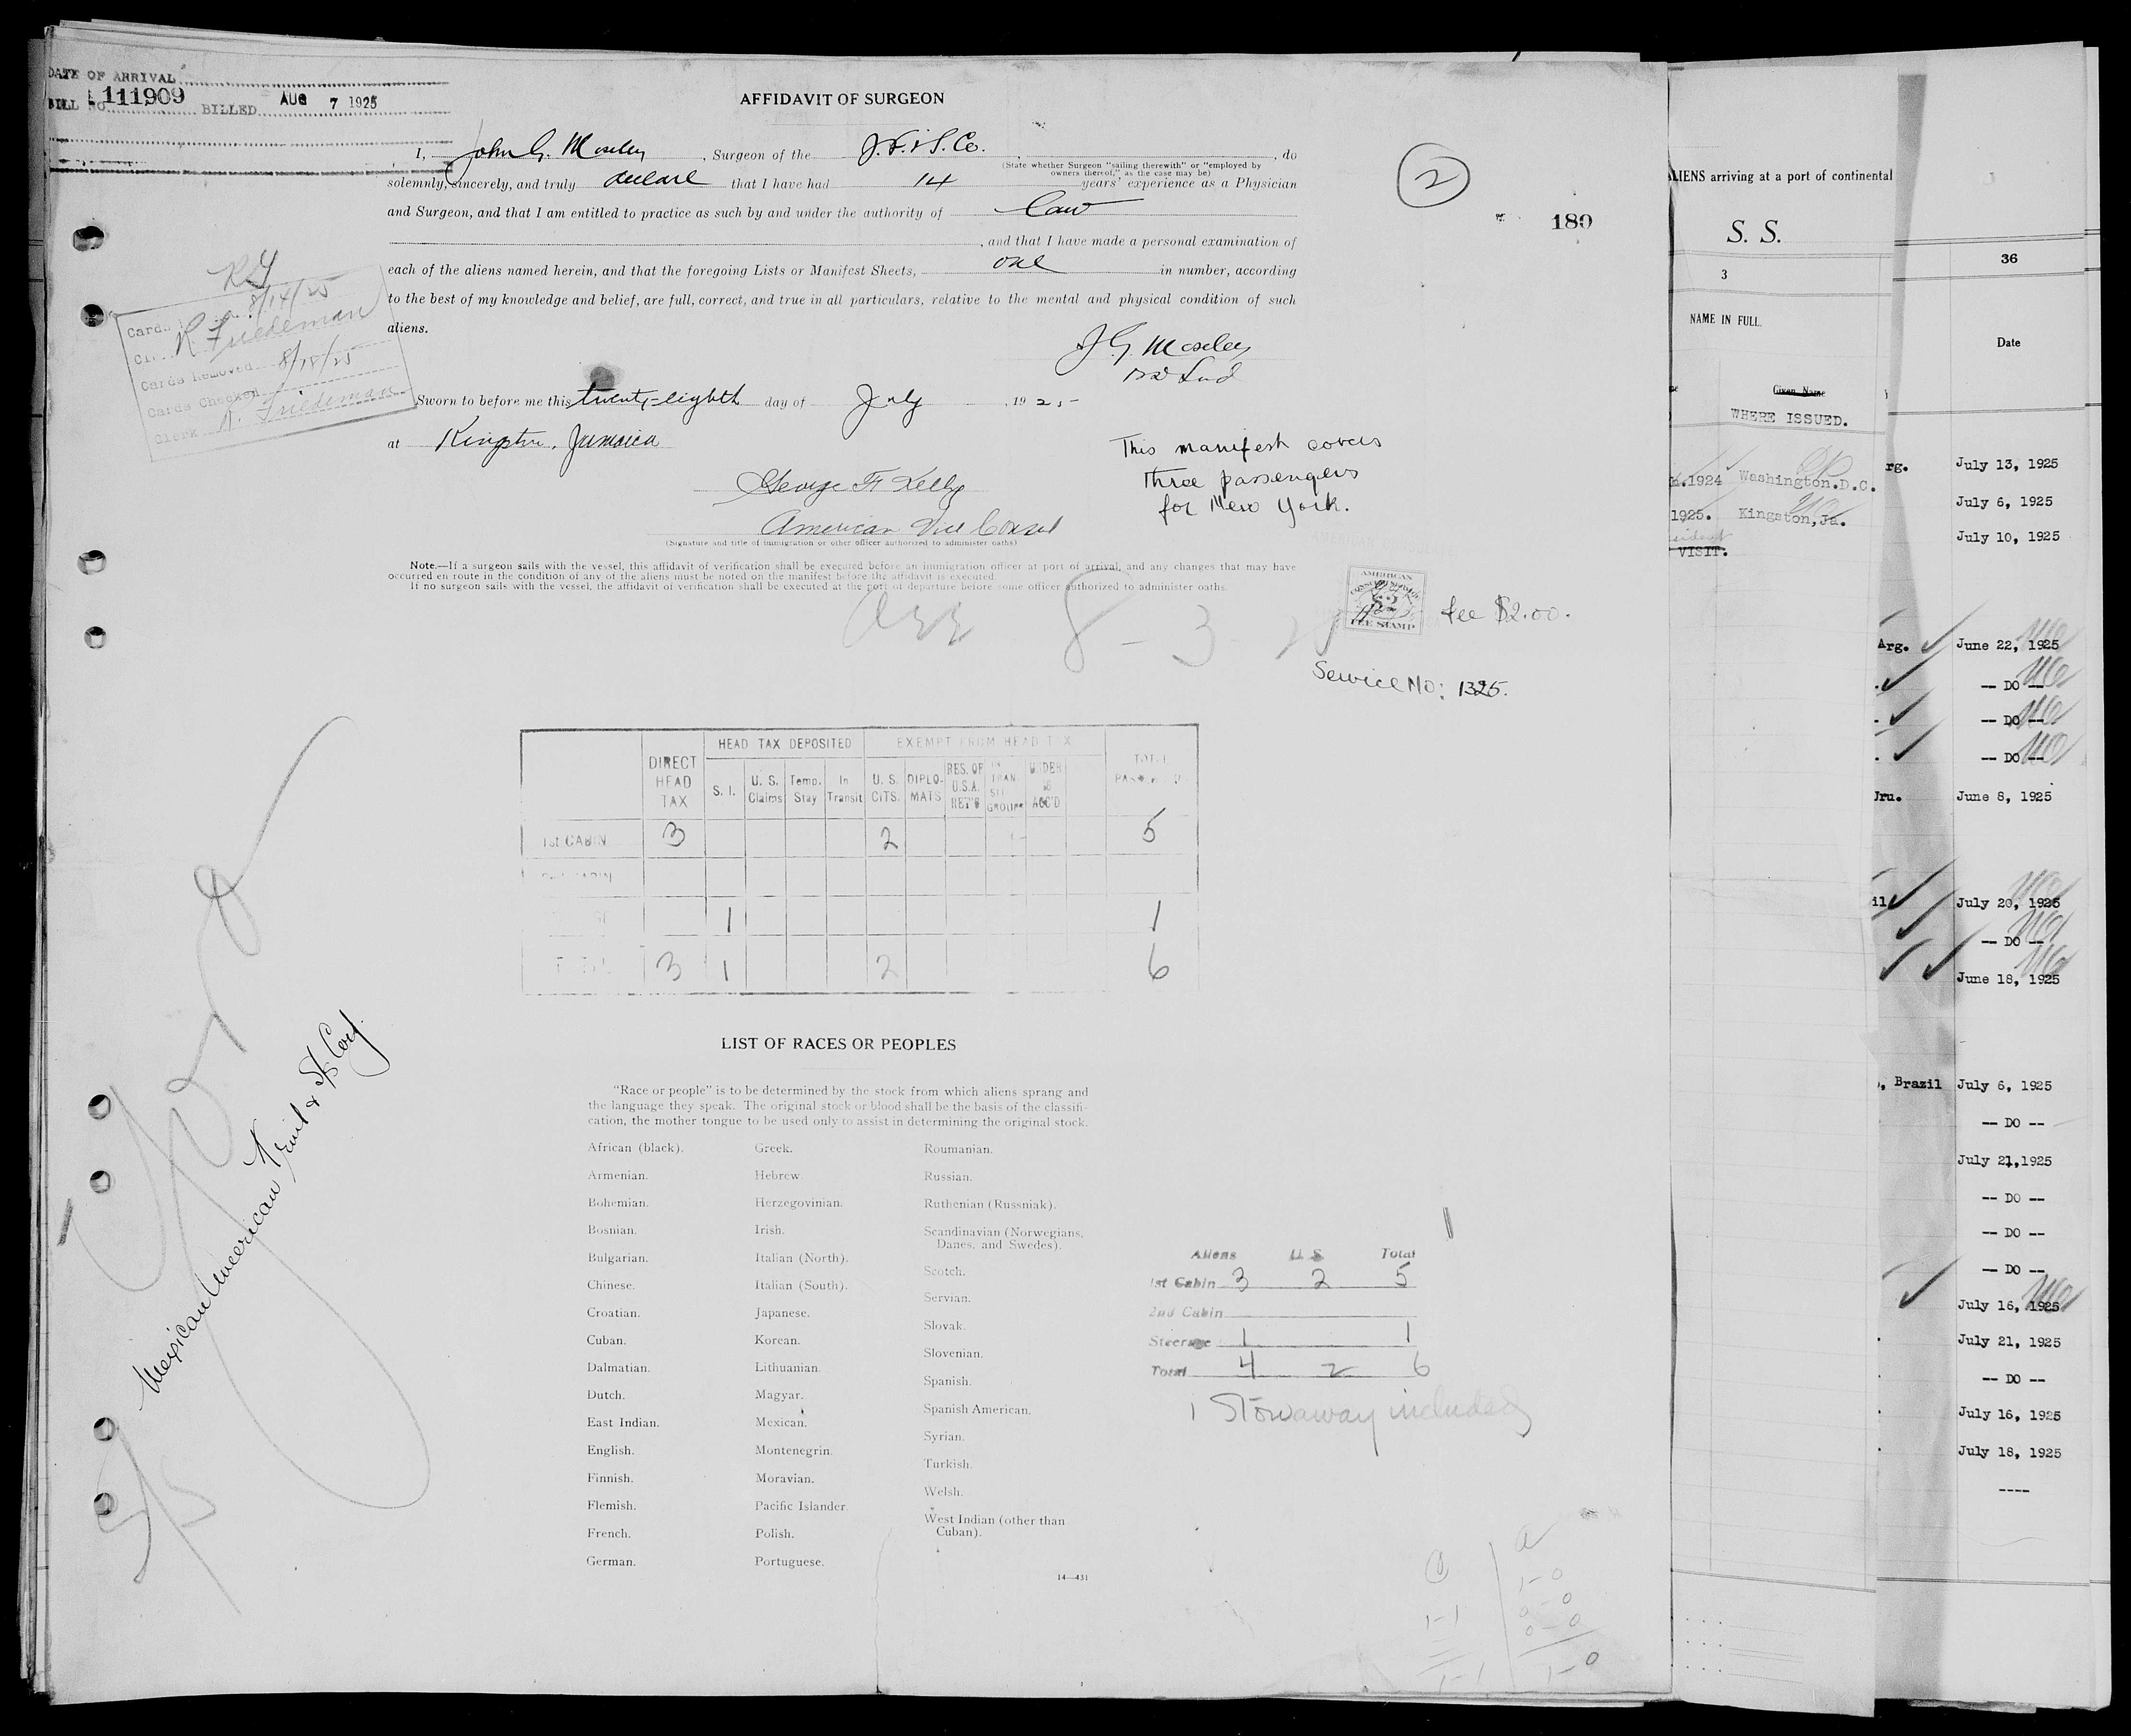 DATE OF ARRIVAL
BILL NO. 111909 BILLED AUG 7 1925
AFFIDAVIT OF SURGEON
I, John G. Moseley, Surgeon of the J. F. & S. Co., do
(State whether Surgeon "sailing therewith" or "employed by
owners thereof," as the case may be)
solemnly, sincerely, and truly declare that I have had 14 years' experience as a Physician
and Surgeon, and that I am entitled to practice as such by and under the authority of Law
, and that I have made a personal examination of
each of the aliens named herein, and that the foregoing Lists or Manifest Sheets, one in number, according
to the best of my knowledge and belief, are full, correct, and true in all particulars, relative to the mental and physical condition of such
aliens.
J G. Moseley
Sworn to before me this twenty-eighth day of July, 1925
at Kingston, Jamaica
George F Kelly
American Vice Consul
(Signature and title of immigration or other officer authorized to administer oaths)
This manifest covers
three passengers
for New York.
2
180
8/14/25
Cards
R Friedeman
Cards Removed 8/18/25
Cards Checked
Clerk R. Friedeman
Note.—If a surgeon sails with the vessel, this affidavit of verification shall be executed before an immigration officer at port of arrival, and any changes that may have
occurred en route in the condition of any of the aliens must be noted on the manifest before the affidavit is executed.
If no surgeon sails with the vessel, the affidavit of verification shall be executed at the port of departure before some officer authorized to administer oaths.
8-3-25
AMERICAN
$2
FEE STAMP
fee $2.00.
Service No: 1325.
DIRECT HEAD TAX
HEAD TAX DEPOSITED
EXEMPT FROM HEAD TAX
TOTAL
S. I. U. S. Claims Temp. Stay In Transit U. S. CITS. DIPLO-MATS RES. OF U.S.A. RET'G IN TRAN SIT GROUPS UNDER 16 ACC'D
1st CABIN 3 2 5
1 1
TOTAL 3 1 2 6
Mexican American Fruit & SS Corp.
LIST OF RACES OR PEOPLES
"Race or people" is to be determined by the stock from which aliens sprang and
the language they speak. The original stock or blood shall be the basis of the classifi-
cation, the mother tongue to be used only to assist in determining the original stock.
African (black).
Armenian.
Bohemian.
Bosnian.
Bulgarian.
Chinese.
Croatian.
Cuban.
Dalmatian.
Dutch.
East Indian.
English.
Finnish.
Flemish.
French.
German.
Greek.
Hebrew.
Herzegovinian.
Irish.
Italian (North).
Italian (South).
Japanese.
Korean.
Lithuanian.
Magyar.
Mexican.
Montenegrin.
Moravian.
Pacific Islander.
Polish.
Portuguese.
Roumanian.
Russian.
Ruthenian (Russniak).
Scandinavian (Norwegians,
Danes, and Swedes).
Scotch.
Servian.
Slovak.
Slovenian.
Spanish.
Spanish American.
Syrian.
Turkish.
Welsh.
West Indian (other than
Cuban).
14—431
Aliens U S Total
1st Cabin 3 2 5
2nd Cabin
Steerage 1 1
Total 4 2 6
1 Stowaway included
1-1
1-1
a
1-0
0-0
0-0
1-0
ALIENS arriving at a port of continental
S. S.
3
NAME IN FULL.
Given Name
WHERE ISSUED.
1924 Washington.D.C.
1925. Kingston,Ja.
VISIT.
36
Date
rg. July 13, 1925
July 6, 1925
July 10, 1925
Arg. June 22, 1925
-- DO --
-- DO --
-- DO --
Uru. June 8, 1925
il July 20, 1925
-- DO --
June 18, 1925
, Brazil July 6, 1925
-- DO --
July 21,1925
-- DO --
-- DO --
-- DO --
July 16, 1925
July 21, 1925
-- DO --
July 16, 1925
July 18, 1925
----